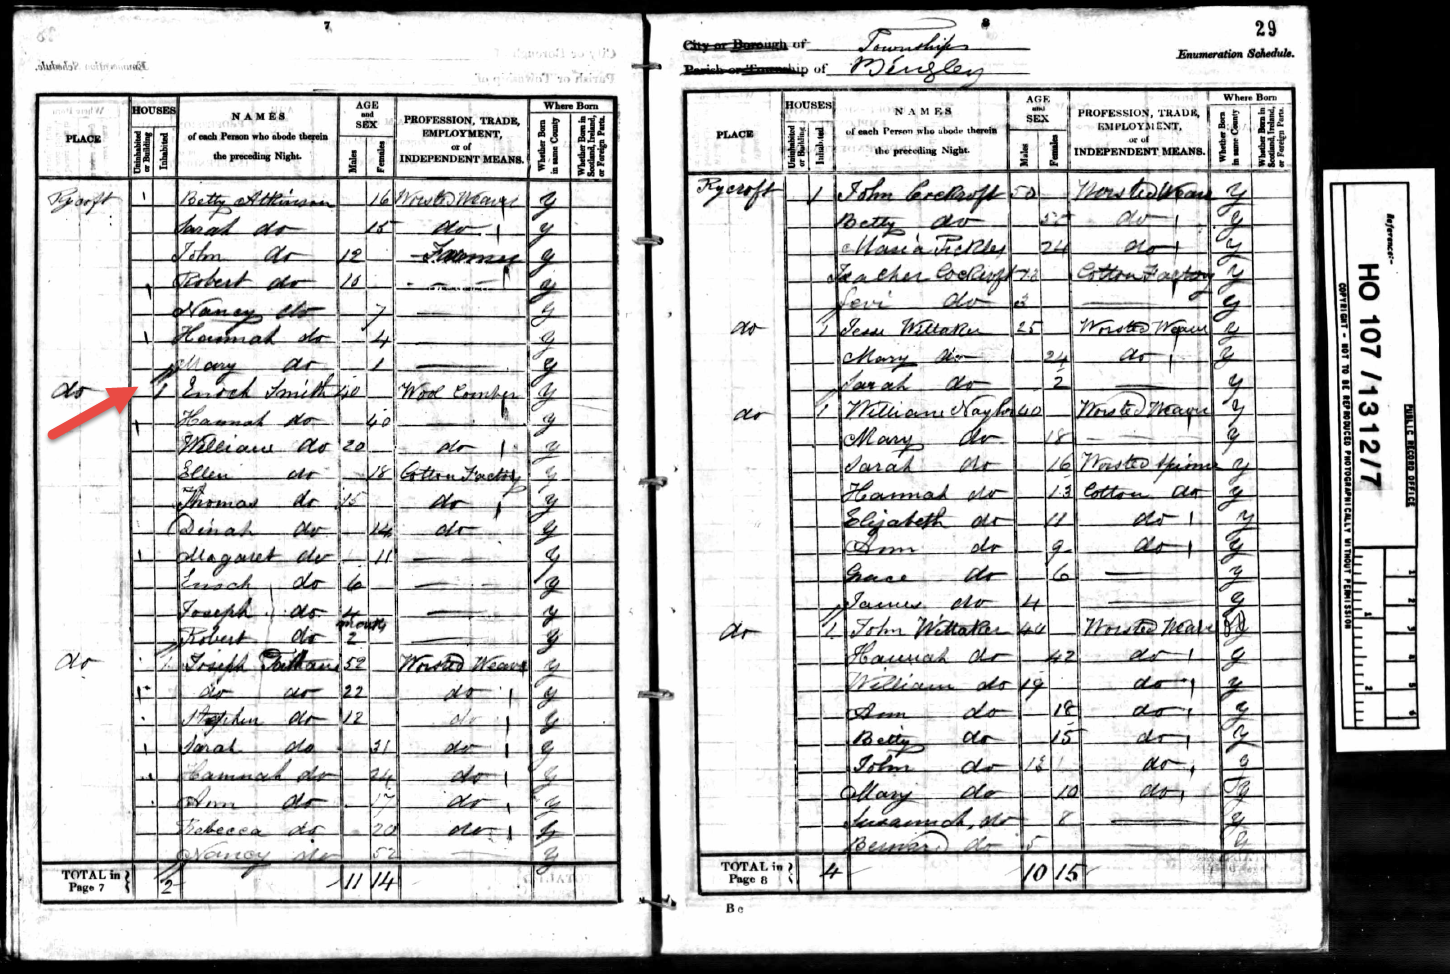 7
PLACE
HOUSES
Uninhabited or Building
Inhabited
NAMES
of each Person who abode therein
the preceding Night.
AGE
and
SEX
Males
Females
PROFESSION, TRADE,
EMPLOYMENT,
or of
INDEPENDENT MEANS.
Where Born
Whether Born in same County
Whether Born in Scotland, Ireland, or Foreign Parts.
Rycroft Betty Atkinson 16 Worsted Weaver y
Sarah do 15 do y
John do 12 Farmer y
Robert do 10 y
Nancy do 7 y
Hannah do 4 y
Mary do 1 y
do 1 Enoch Smith 40 Wool Comber y
Hannah do 40 y
William do 20 do y
Ellen do 18 Cotton Factory y
Thomas do 15 do y
Dinah do 14 do y
Magaret do 11 y
Enoch do 6 y
Joseph do 4 y
Robert do months 2 y
do 1 Joseph 52 Worsted Weaver y
do do 22 do y
Stephen do 12 do y
Sarah do 31 do y
Hannah do 24 do y
Ann do 17 do y
Rebecca do 20 do y
Nancy do 52 y
TOTAL in
Page 7 } 2 11 14
8
29
City or Borough of
Parish or Township of
Township
Bingley
Enumeration Schedule.
PLACE
HOUSES
Uninhabited or Building
Inhabited
NAMES
of each Person who abode therein
the preceding Night.
AGE
and
SEX
Males
Females
PROFESSION, TRADE,
EMPLOYMENT,
or of
INDEPENDENT MEANS.
Where Born
Whether Born in same County
Whether Born in Scotland, Ireland, or Foreign Parts.
Rycroft 1 John Cockroft 50 Worsted Weaver y
Betty do 55 do y
Maria Pickles 24 do y
Cockroft Cotton Factory y
Levi do y
do 1 Jesse Wittaker 25 Worsted Weaver y
Mary do 24 do y
Sarah do 2 y
do 1 William Naylor 40 Worsted Weaver y
Mary do 18 y
Sarah do 16 Worsted Spinner y
Hannah do 13 Cotton do y
Elizabeth do 11 do y
Ann do 9 do y
Grace do 6 y
James do 4 y
do 1 John Wittaker 44 Worsted Weaver y
Hannah do 42 do y
William do 19 do y
Ann do 18 do y
Betty do 15 do y
John do 13 do y
Mary do 10 do y
Susannah do 8 y
Bernard do 5 y
TOTAL in
Page 8 } 4 10 15
B c
Reference:-
HO 107/1312/7
PUBLIC RECORD OFFICE
COPYRIGHT - NOT TO BE REPRODUCED PHOTOGRAPHICALLY WITHOUT PERMISSION